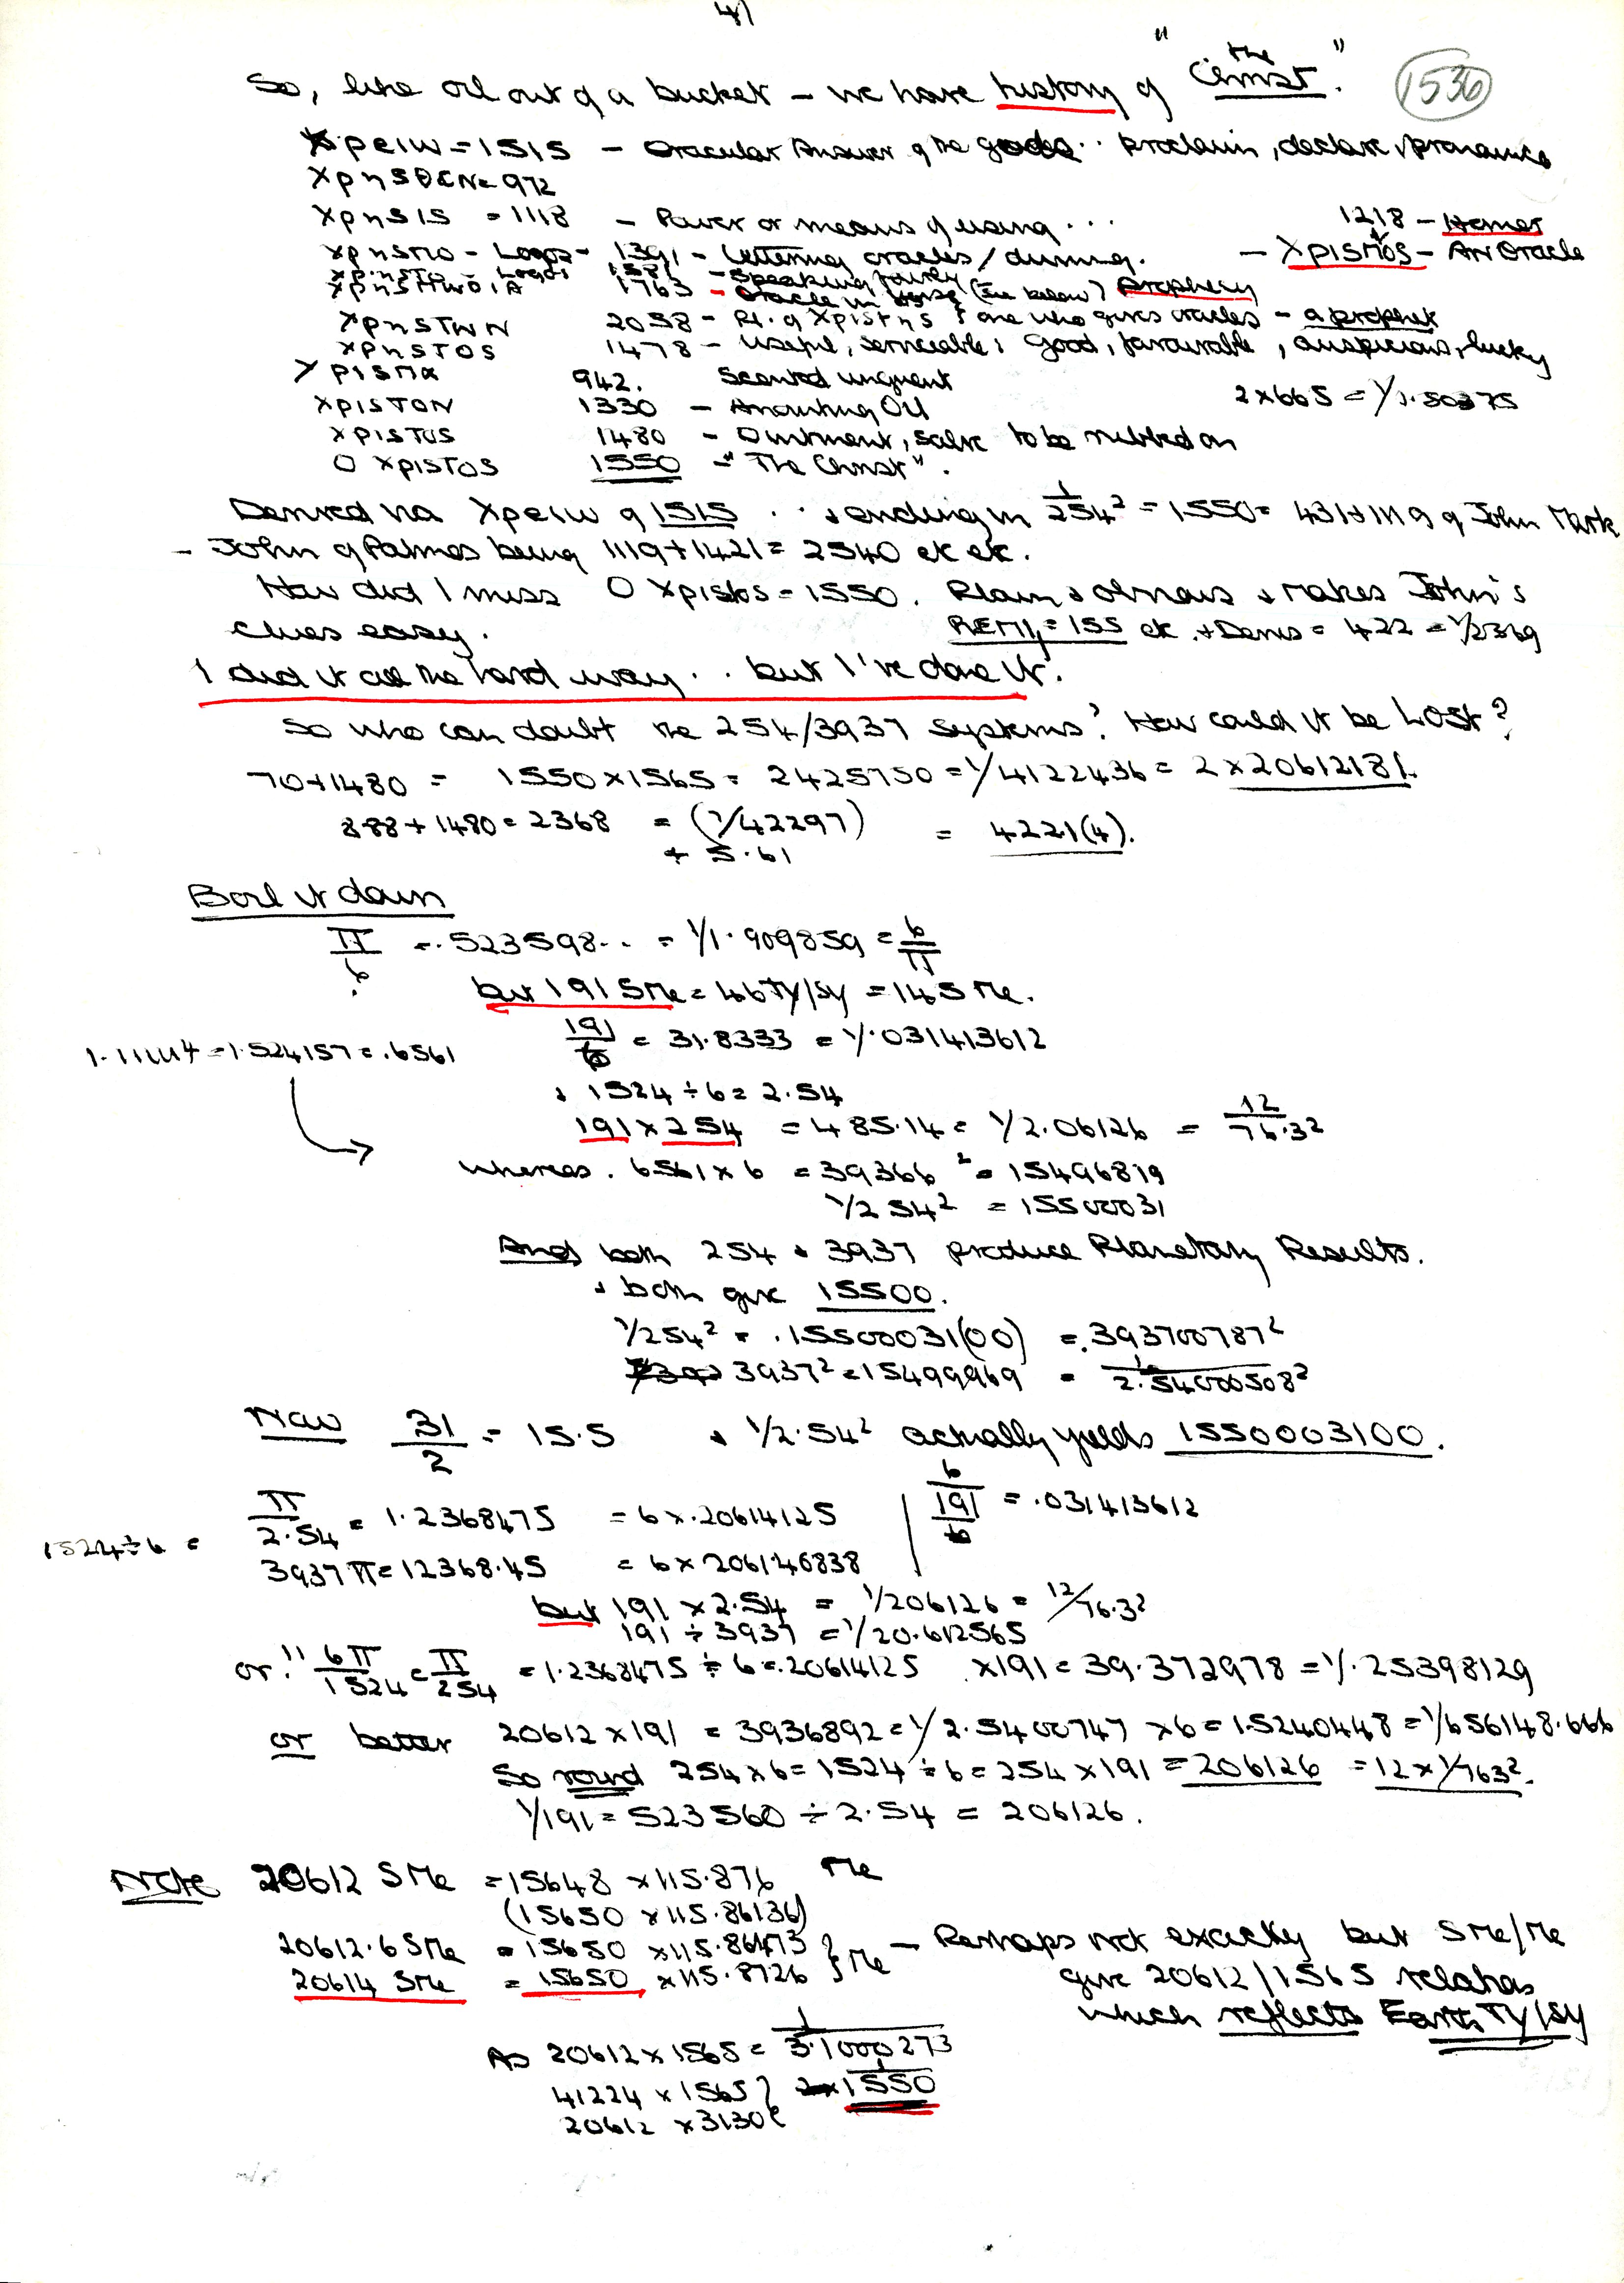 41
So, like oil out of a bucket – we have history of "the Christ". 1536
Xpeiw = 1515 – Oracular Answer of the gods.. proclaim, declare, pronounce
XpnSDEN = 972
XpnSIS = 1118 – Power or means of using ...
1218 – Homer
XpnSMO – Logos – 1391 – Uttering oracles/divining. – XpISMOS – An Oracle
XpnSTO – Logos 1581 – Speaking fairly
XpnSMWDIA 1763 – Oracle in Verse (See below) Prophecy
XpnSTWN 2058 – Pl. of XpISTnS & one who gives oracles – a prophet
XpnSTOS 1478 – Useful, serviceable, Good, favourable, auspicious, lucky
XpISMA 942. Scented unguent
XpISTON 1330 – Anointing Oil 2x665 = 1/.50375
XpISTOS 1480 – Ointment, salve to be rubbed on
O XpISTOS 1550 – "The Christ".
Derived via Xpeiw of 1515 .. & ending in 1/254² = 1550 = 431+1119 of John Mark
– John of Patmos being 1119+1421 = 2540 etc etc.
How did I miss O Xpistos = 1550. Plain & obvious & makes John's
clues easy. REMI, = 155 etc. + Denis = 422 = 1/2369
I did it all the hard way.. but I've done it.
So who can doubt the 254/3937 systems? How could it be Lost?
70+1480 = 1550 x 1565 = 2425750 = 1/4122436 = 2 x 2061218/.
888+1480 = 2368 = (1/42297) = 4221(4).
+ 5.61
Boil it down
π/6 = .523598.. = 1/1.909859 = 6/π
but 191 SMe = 46 TY/SY = 145 Me.
191/6 = 31.8333 = 1/.031413612
1.11111⁴ = 1.524157 = .6561
& 1524 ÷ 6 = 2.54
191 x 254 = 485.14 = 1/2.06126 = 12/76.3²
Whereas .6561 x 6 = 39366 ² = 15496819
1/254² = 15500031
And both 254 & 3937 produce Planetary Results.
& both give 15500.
1/254² = .15500031(00) = .393700787²
3937² = 15499969 = 1/2.54000508²
Now 31/2 = 15.5 & 1/2.54² actually yields 1550003100.
π/2.54 = 1.2368475 = 6 x .20614125 6/191 = .031413612
1524÷6 =
3937π = 12368.45 = 6 x 206140838
but 191 x 2.54 = 1/206126 = 12/76.3²
191 ÷ 3937 = 1/20.612565
or!! 6π/1524 = π/254 = 1.2368475 ÷ 6 = .20614125 x191 = 39.372978 = 1/.25398129
or better 20612 x 191 = 3936892 = 1/2.5400747 x 6 = 1.5240448 = 1/656148.666
So round 254 x 6 = 1524 ÷ 6 = 254 x 191 = 206126 = 12 x 1/763².
1/191 = 523560 ÷ 2.54 = 206126.
Note 20612 SMe = 15648 x 115.876 Me
(15650 x 115.86136)
20612.6 SMe = 15650 x 115.86473 } Me – Perhaps not exactly but SMe/Me
20614 SMe = 15650 x 115.8726 give 20612/1565 relations
which reflects Earth TY/SY
As 20612 x 1565 = 1/3.1000273
41224 x 1565 } 1/1550
20612 x 3130